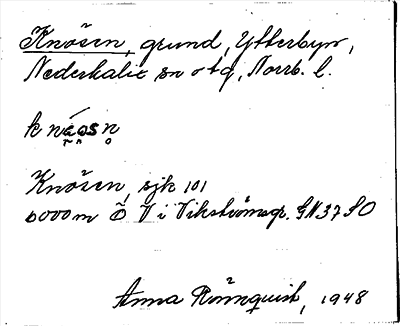 Knösen, grund, Ytterbyn,
Nederkalix sn o tg, Norrb. l.
knö̀osn̥
Knösen, sjk 101
6000 m Ö V i Vikströmsgr. GN 37 SO
Anna Rönnquist, 1948